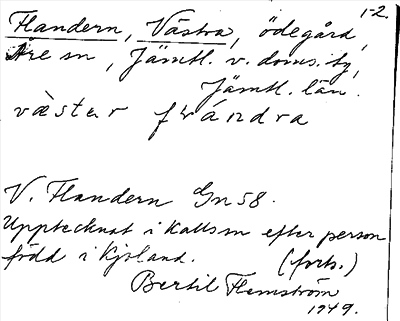 1-2.
Flandern, Västra, ödegård,
Åre sn, Jämtl. v. doms. tg,
Jämtl. län.
vàstar frándra
V. Flandern Gn 58.
Upptecknat i Kallsn efter person
född i Kjosland.
(forts.)
Bertil Flemström
1949.